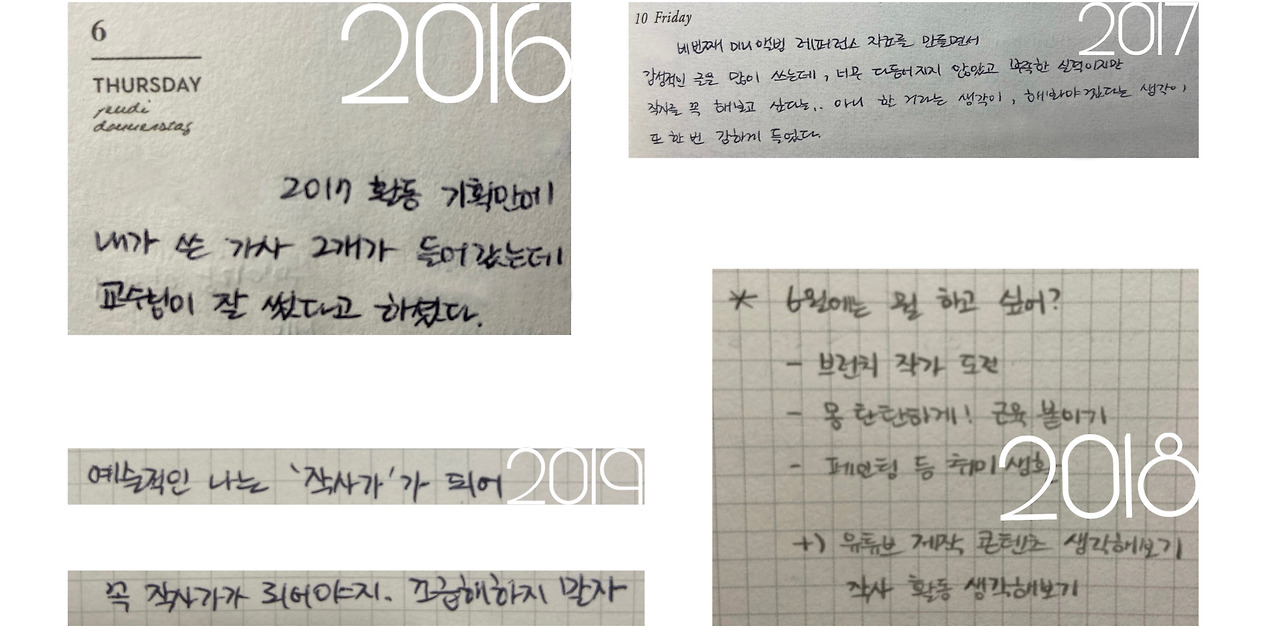 2016
6
THURSDAY
jeudi
donnerstag
2017 활동 기획안에
내가 쓴 가사 2개가 들어갔는데
교수님이 잘 썼다고 하셨다.
2017
10 Friday
네번째 미니앨범 레퍼런스 자료를 만들면서
감성적인 글을 많이 쓰는데, 너무 다듬어지지 않았고 부족한 실력이지만
작사를 꼭 해보고 싶다는.. 아니 할 거라는 생각이, 해봐야겠다는 생각이
또 한 번 강하게 들었다.
2018
* 6월에는 뭘 하고 싶어?
- 브런치 작가 도전
- 몸 탄탄하게! 근육 붙이기
- 페인팅 등 취미생활
+) 유튜브 제작 콘텐츠 생각해보기
작사 활동 생각해보기
2019
예술적인 나는 '작사가'가 되어
꼭 작사가가 되어야지. 조급해하지 말자